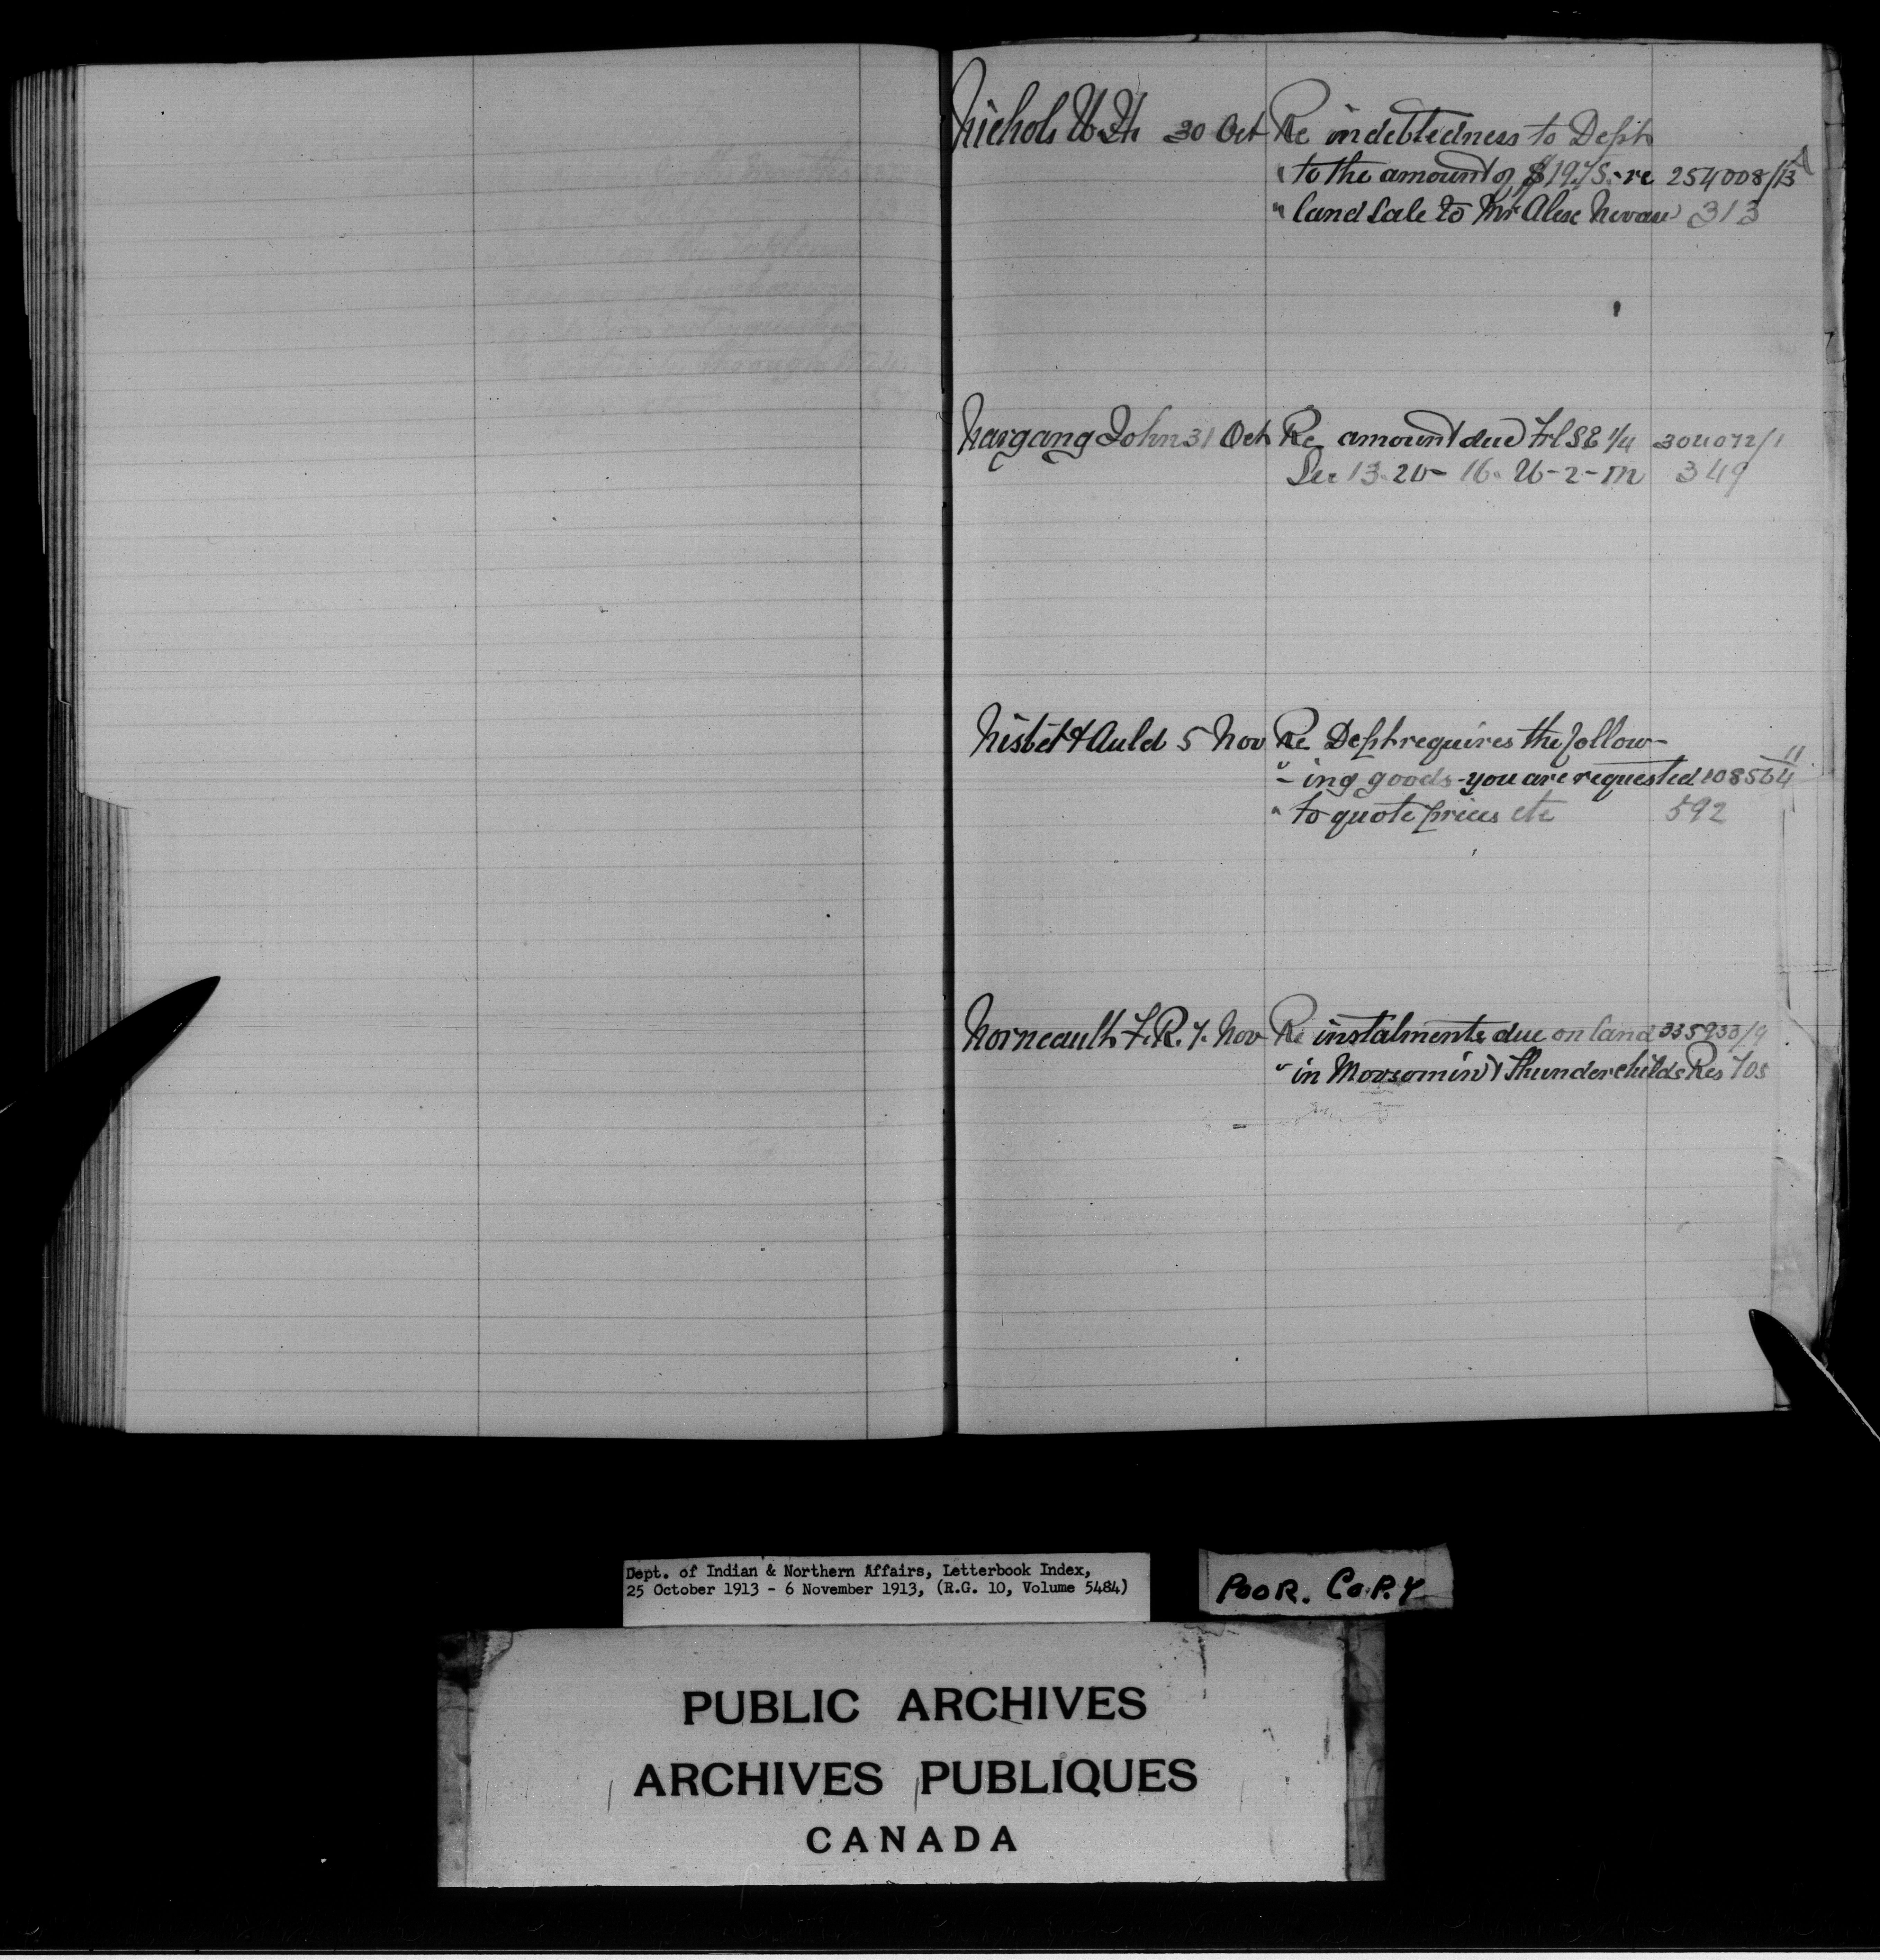 Nichols W.H. 30 Oct Re indebtedness to Dept
" to the amount of $19.75 - re 254008/13 A
" land sale to Mr Alex 313
Nargang John 31 Oct Re amount due Frl SE 1/4 304072/1
Sec 13. 20 - 16. W - 2 - M 349
Nisbet & Auld 5 Nov Re Dept requires the follow-
" ing goods - you are requested 108564/11
" to quote prices etc 592
Norneault F.R. 7. Nov Re instalments due on land 335933/9
" in Moosomin & Thunderchilds Res 705
Dept. of Indian & Northern Affairs, Letterbook Index,
25 October 1913 - 6 November 1913, (R.G. 10, Volume 5484)
POOR. COPY
PUBLIC ARCHIVES
ARCHIVES PUBLIQUES
CANADA